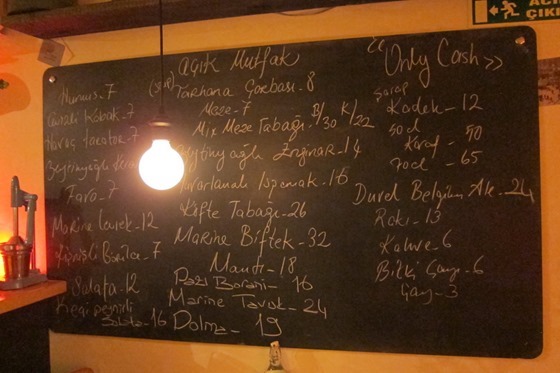 Açık Mutfak
Humus - 7
Havuç tarator - 7
Fava - 7
Marine Levrek - 12
Börülce - 7
Salata - 12
Keçi peynirli
Salata - 16
Tarhana Çorbası - 8
Meze - 7
Mix Meze Tabağı - B/30 K/22
Zeytinyağlı Enginar - 14
Ispanak - 15
Köfte Tabağı - 26
Marine Biftek - 32
Mantı - 18
Pazı Borani - 16
Marine Tavuk - 24
Dolma - 19
"Only Cash"
Şarap
Kadeh - 12
50cl
Karaf - 50
70cl - 65
Duvel Belgium Ale - 24
Rakı - 13
Kahve - 6
Bitki Çayı - 6
Çay - 3
ACİL
ÇIKIŞ